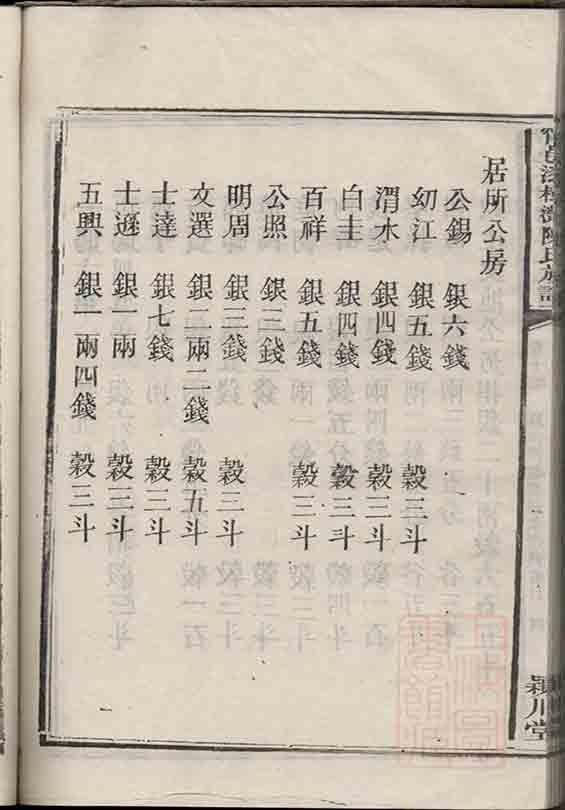 陳氏族譜
穎川堂
居所公房
公錫 銀六錢
幼江 銀五錢 穀三斗
渭水 銀四錢 穀三斗
白圭 銀四錢 穀三斗
百祥 銀五錢 穀三斗
公照 銀三錢
明周 銀三錢 穀三斗
文選 銀二兩二錢 穀五斗
士達 銀七錢 穀三斗
士遜 銀一兩 穀三斗
五興 銀一兩四錢 穀三斗